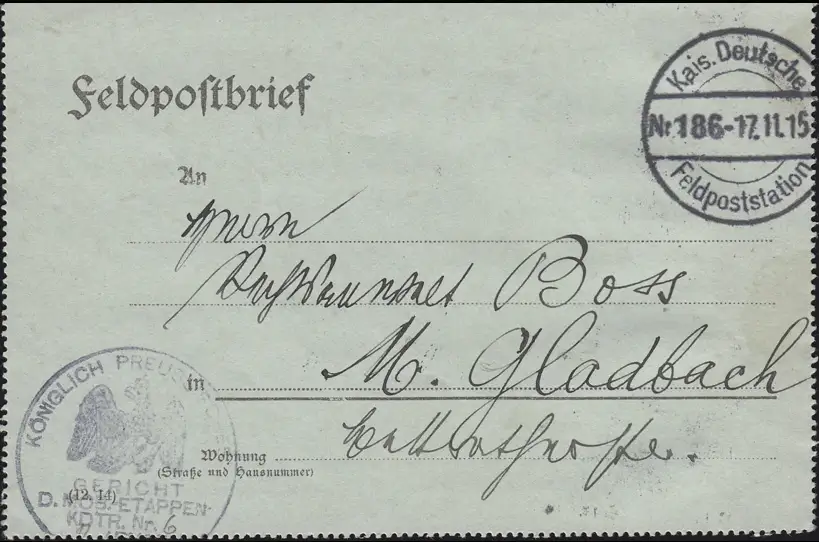 Feldpostbrief
Kais. Deutsche
Nr 186-17.11.15
Feldpoststation
An
Herrn
Rechtsanwalt Boss
in M. Gladbach
Wohnung
(Straße und Hausnummer)
KÖNIGLICH PREUSSISCHE
GERICHT
D. MOB. ETAPPEN-
KDTR. Nr. 6
(12. 14)